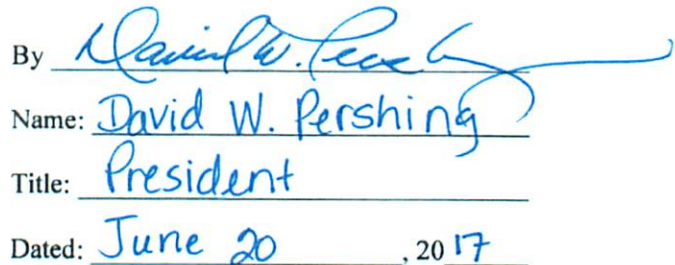 By David W. Pershing
Name: David W. Pershing
Title: President
Dated: June 20, 2017